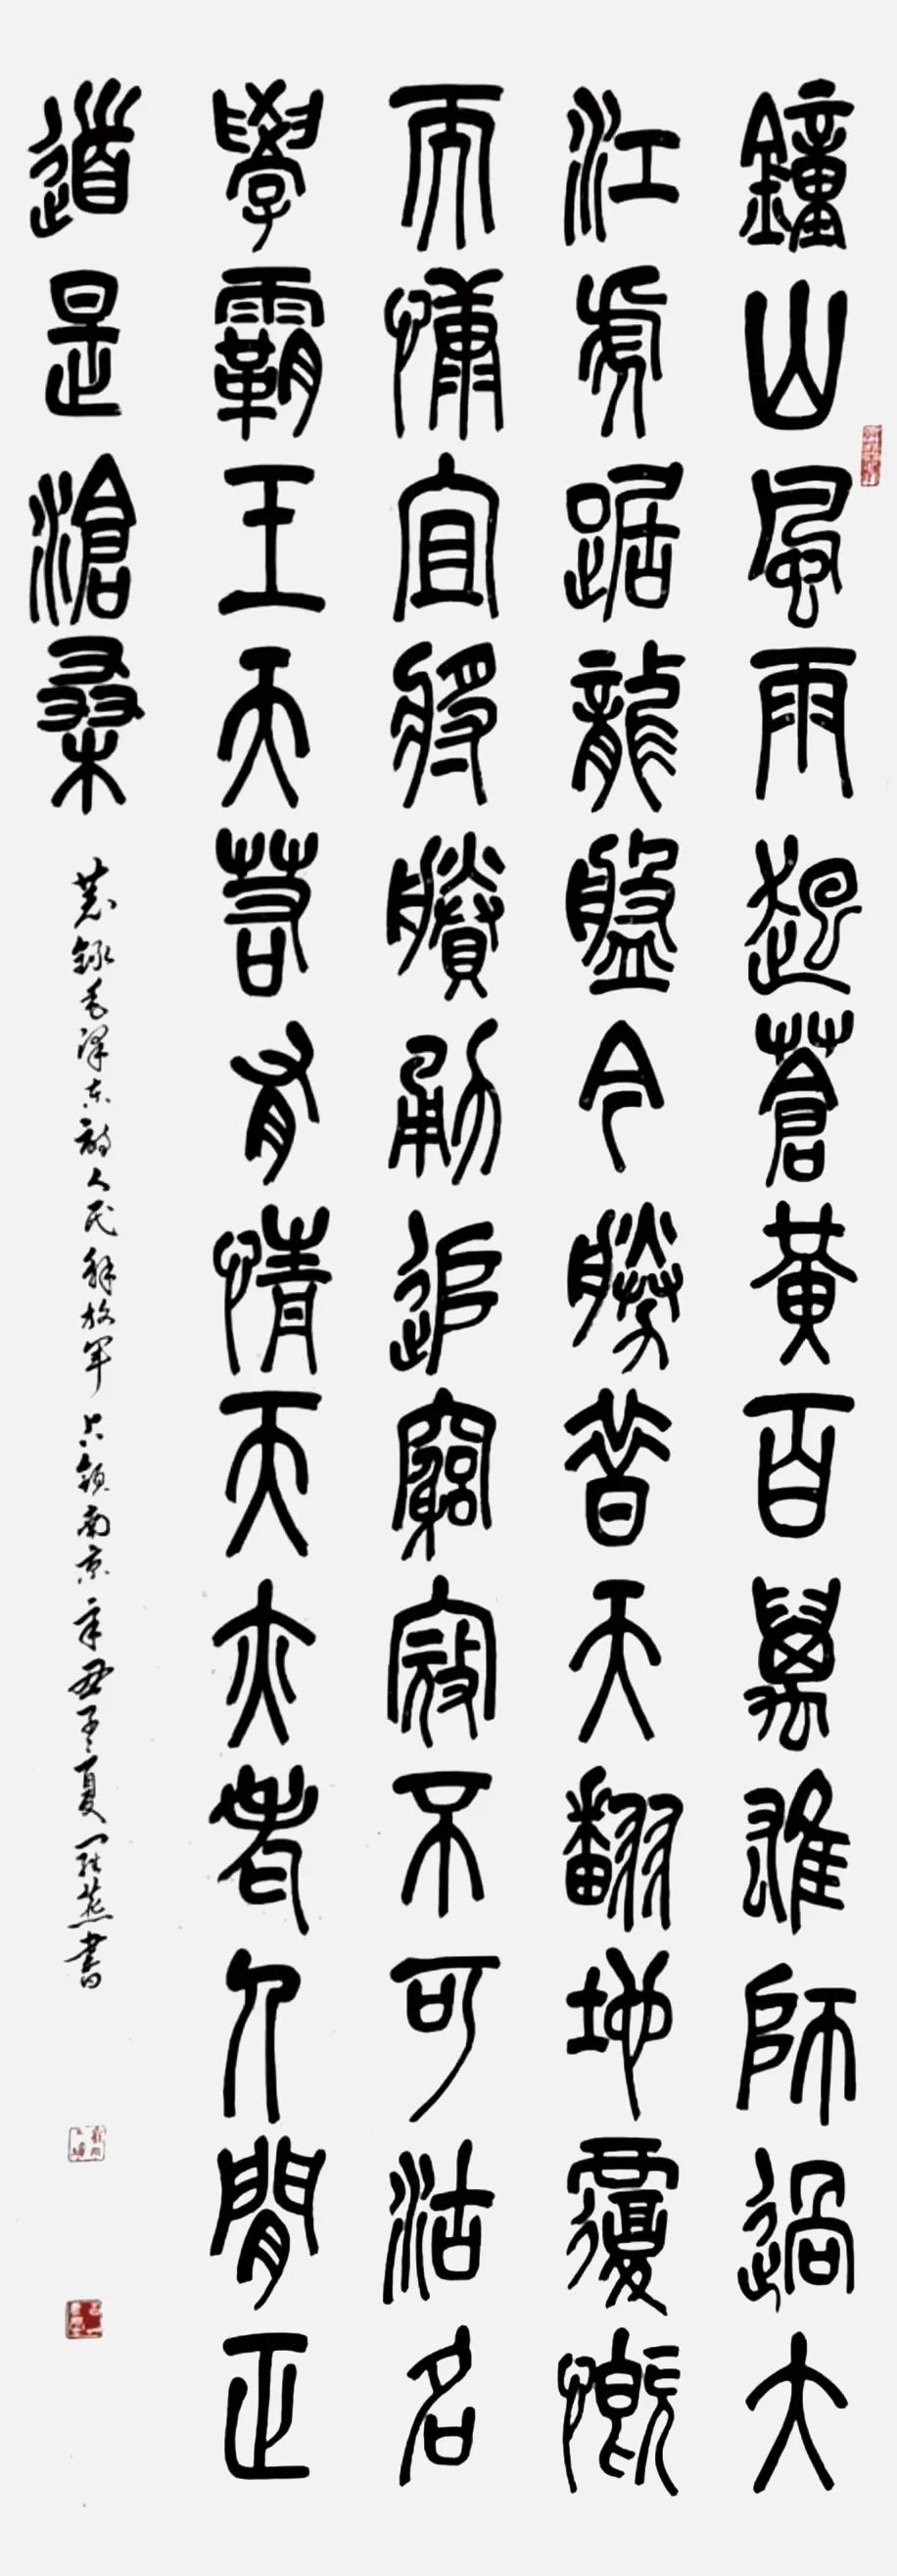 鐘山風雨起蒼黃百萬雄師過大
江虎踞龍盤今勝昔天翻地覆慨
而慷宜將賸勇追窮寇不可沽名
學霸王天若有情天亦老人間正
道是滄桑
恭錄毛澤东詩人民解放军占領南京辛丑孟夏燕書